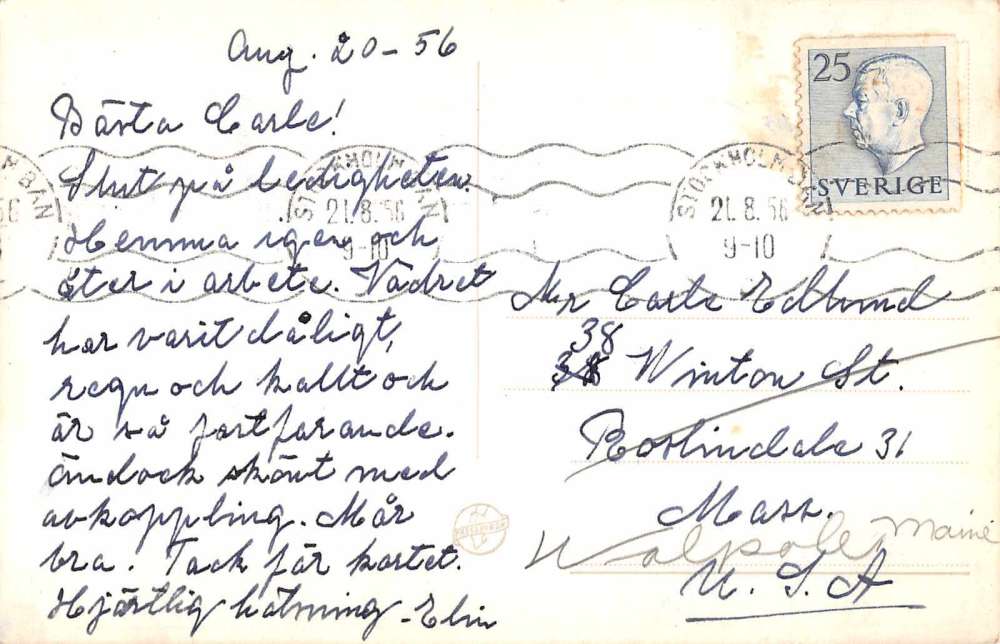 Aug. 20-56
Bästa Carle!
Slut på ledigheten.
Hemma igen och
åter i arbete. Vädret
har varit dåligt,
regn och kallt och
är så fortfarande.
Ändock skönt med
avkoppling. Mår
bra. Tack för kortet.
Hjärtlig hälsning - Elin
25
SVERIGE
STOCKHOLM BAN
21.8.56
9-10
STOCKHOLM BAN
21.8.56
9-10
Mr Carle Edlund
38 Winton St.
Roslindale 31
Mass.
Walpole, Maine
U.S.A